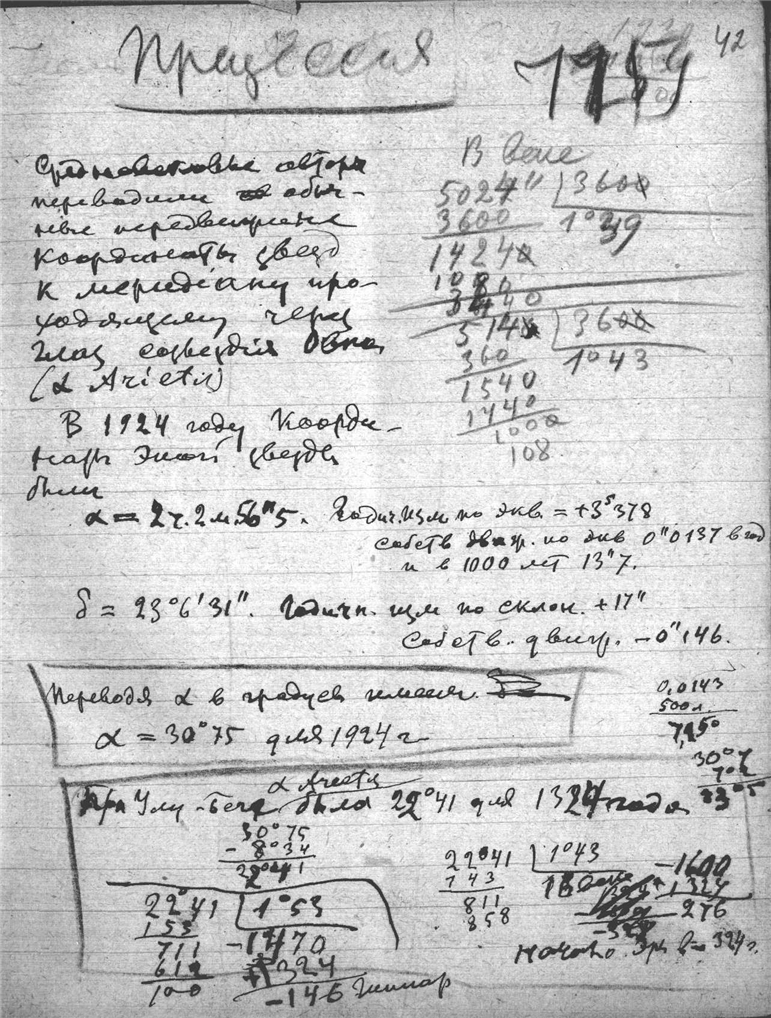 42
Працессия
В веке
Средневековые авторы
переводили обыч-
ные
координаты звезд
к меридиану про-
ходящему через
глаз созвездия Овна
(α Arietis)
5024" | 3600
3600 1°39
14240
1080
3440
5140 | 3600
360 1°43
1540
1440
1000
108
В 1924 году Коорди-
наты этой звезды
были
α = 2ч.2м.56"5. Годич. изм по экв. = +3ˢ378
собств движ. по экв 0"0137 в год
и в 1000 лет 13"7.
δ = 23°6'31". Годичн. изм по склон. +17"
Собств. движ. -0"146.
Переводя α в градусы имеем
α = 30°75 для 1924 г
0,0143
500 л.
7,150
30°7
α Arietis
При Улу-Беге была 22°41 для 1324 года
30°75
- 8°34
22°41
22°41 | 1°43
143 В веке
811
858
-1600
1324
276
22°41 | 1°53
153 -1470
711 +1324
612 -146
100
начало эры в - 324 г.